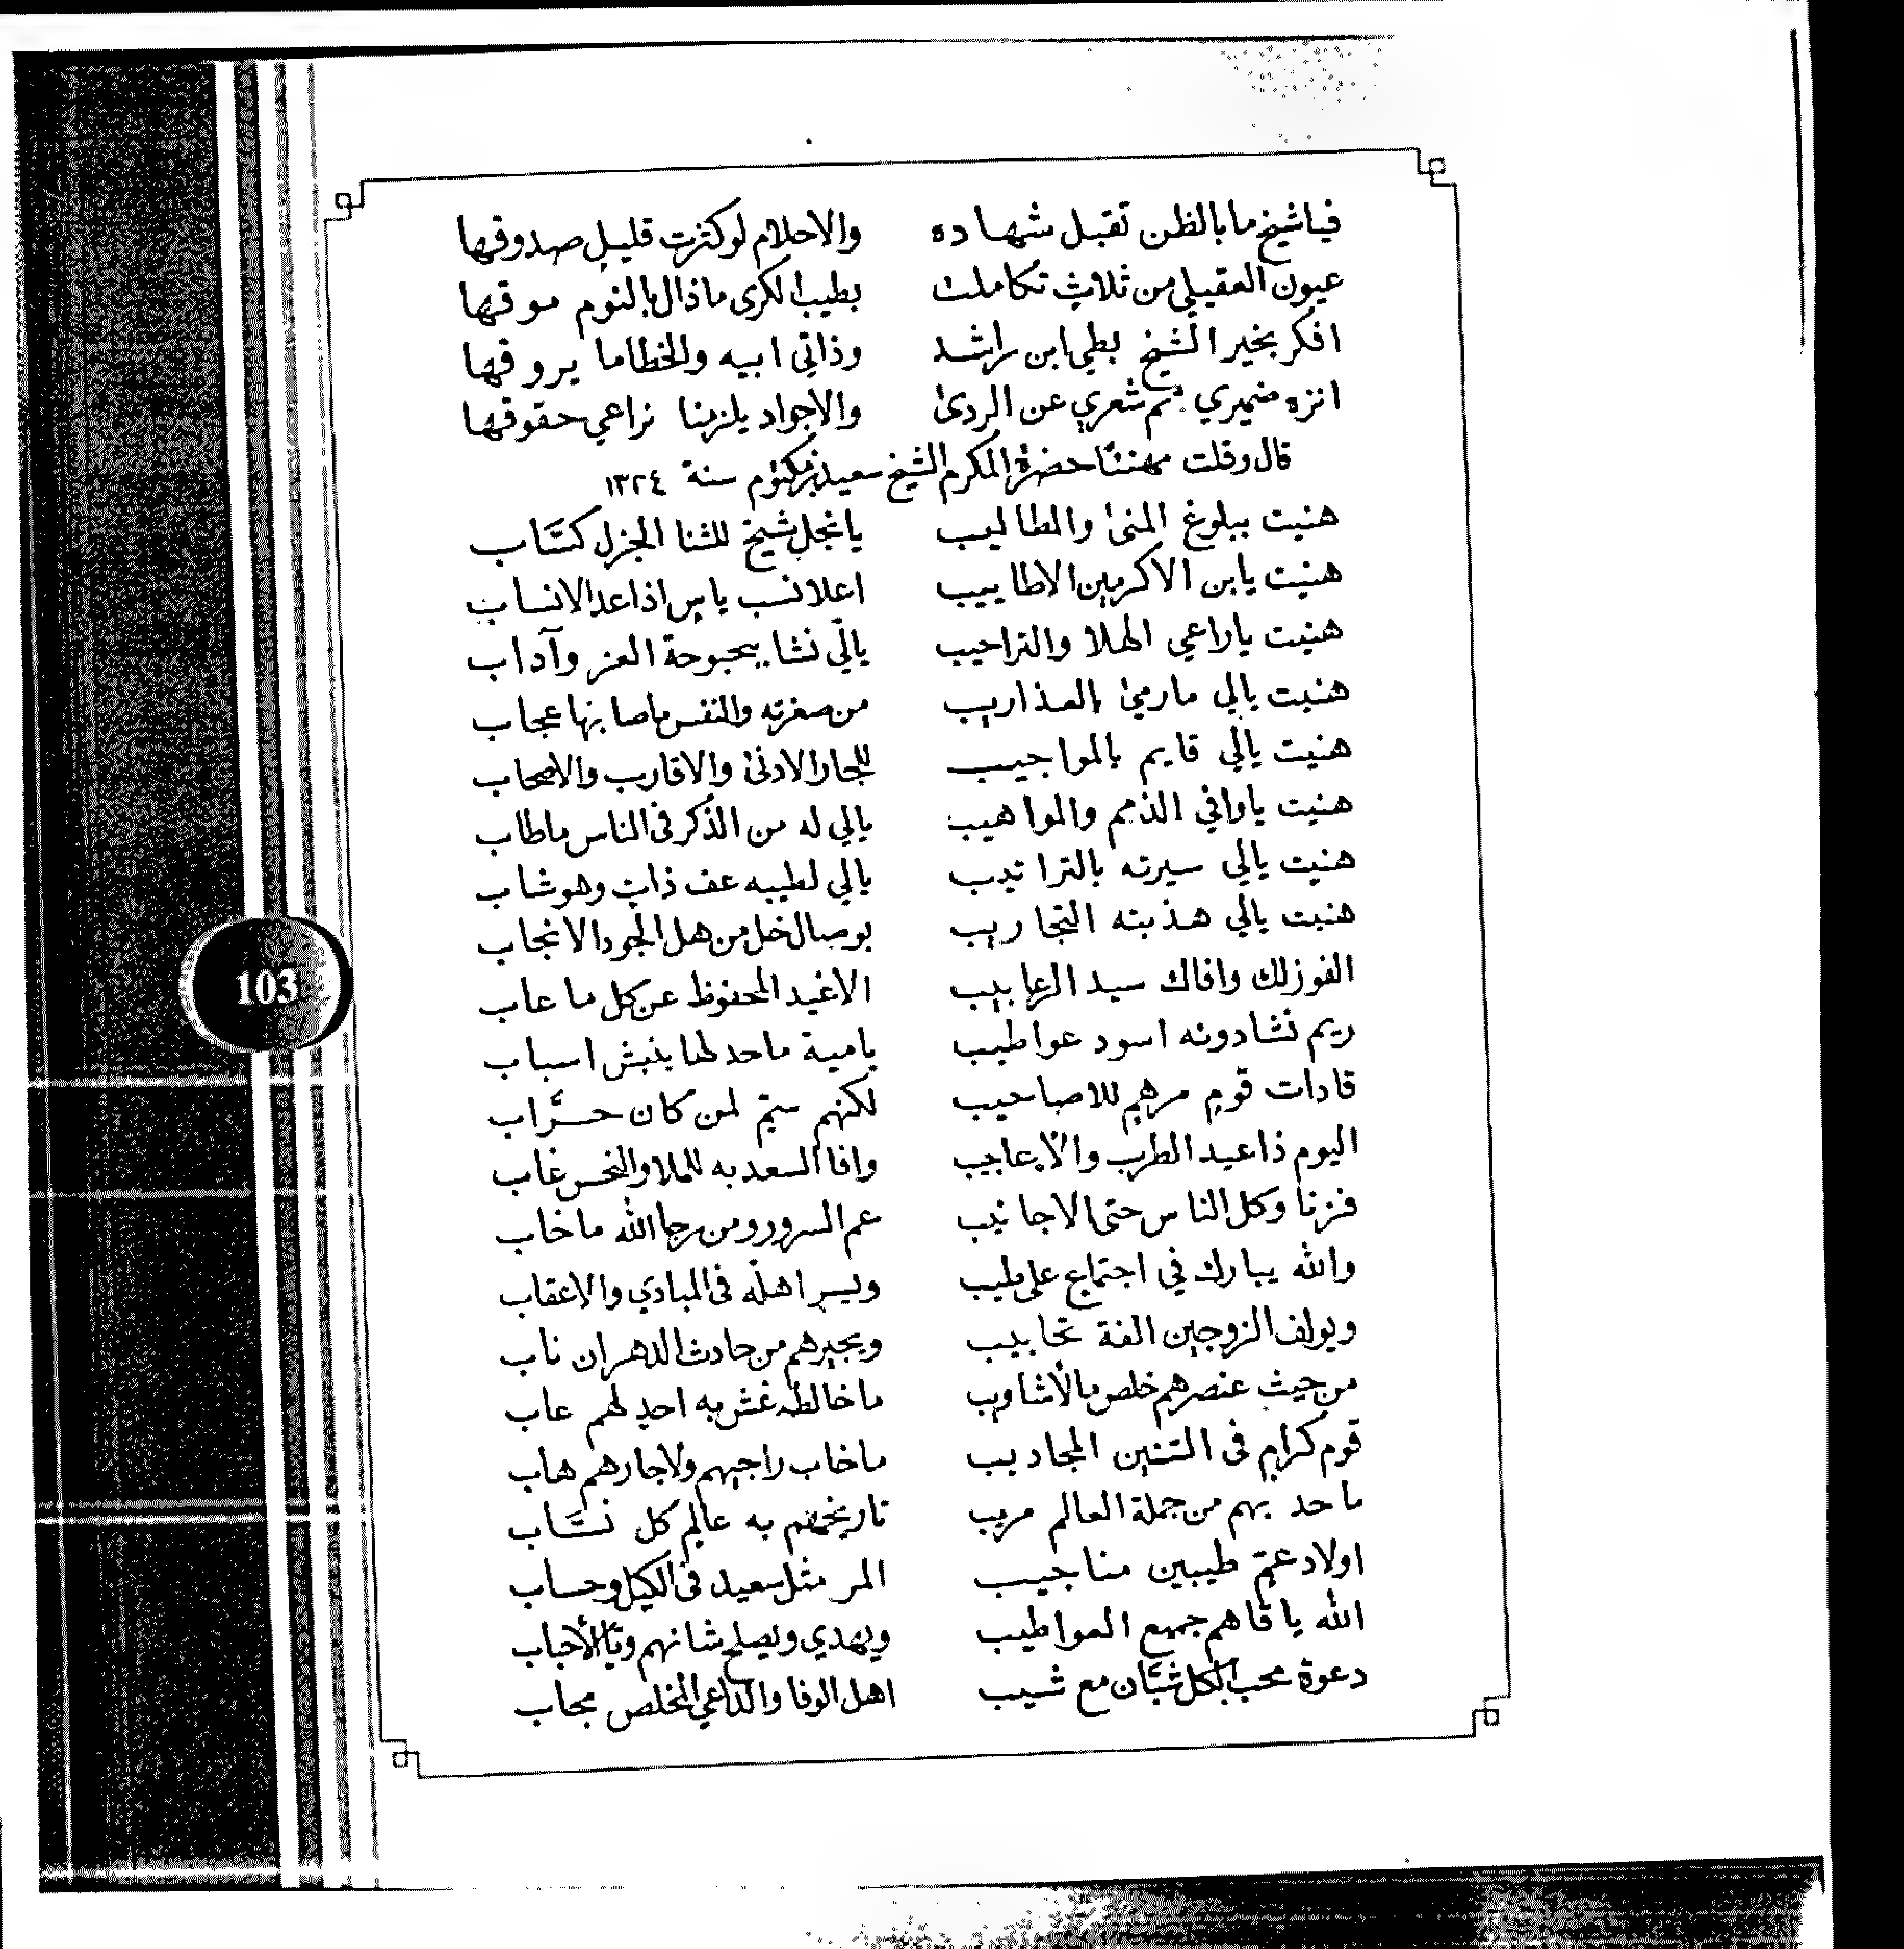 فياشيخ ما بالظن تقبل شهاده والاحلام لو كثرت قليل صدوقها
عيون العقيلي من ثلاث تكاملت بطيب الكرى ماذال بالنوم موقها
افكر بخير الشيخ بطي ابن راشد وذاتي ابيه والخطا ما يروقها
انزه ضميري ثم شعري عن الردى والاجواد يلزمنا نراعي حقوقها
قال وقلت مهنئا حضرة المكرم الشيخ سعيد بن مكتوم سنة ١٣٢٤
هنيت ببلوغ المنى والمطاليب يا نجل شيخ للثنا الجزل كسَّاب
هنيت يابن الاكرمين الاطاييب اعلا نسب ياس اذا عد الانساب
هنيت ياراعي الهلا والتراحيب يالّي نشا ببحبوحة العز وآداب
هنيت يالي مارمي بالعذاريب من صغرته والنفس ماصابها عجاب
هنيت يالي قايم بالمواجيب للجار الادنى والاقارب والاصحاب
هنيت ياوافي الذمم والمواهيب يالي له من الذكر في الناس ماطاب
هنيت يالي سيرته بالتراتيب يالي لطيبه عف ذاب وهو شاب
هنيت يالي هذبته التجاريب بوصال خل من هل الجود الانجاب
الفوز لك وافاك سيد الرعابيب الاغيد المحفوظ عن كل ما عاب
ريم نشا دونه اسود عواطيب يامية ماحد لها ينبش اسباب
قادات قوم مرهم للاصاحيب لكنهم سمّ لمن كان حرَّاب
اليوم ذا عيد الطرب والاعاجيب وافا السعد به للملا والنحس غاب
فزنا وكل الناس حتى الاجانيب عم السرور ومن رجا الله ما خاب
والله يبارك في اجتماع على طيب ويسر اهله في المبادي والاعقاب
ويولف الزوجين الفة تحابيب ويجيرهم من حادث الدهر ان ناب
من حيث عنصرهم خلص بالأشاويب ما خالطه غش به احد لهم عاب
قوم كرام في السنين المجاديب ماخاب راجيهم ولا جارهم هاب
ماحد بهم من جملة العالم مريب تاريخهم به عالم كل نسَّاب
اولاد عمّ طيبين مناجيب المر مثل سعيد في الكيل وحساب
الله ياقاهم جميع العواطيب ويهدي ويصلح شانهم وتا الأحباب
دعوة محب الكل شبَّان مع شيب اهل الوفا والداعي المخلص مجاب
103